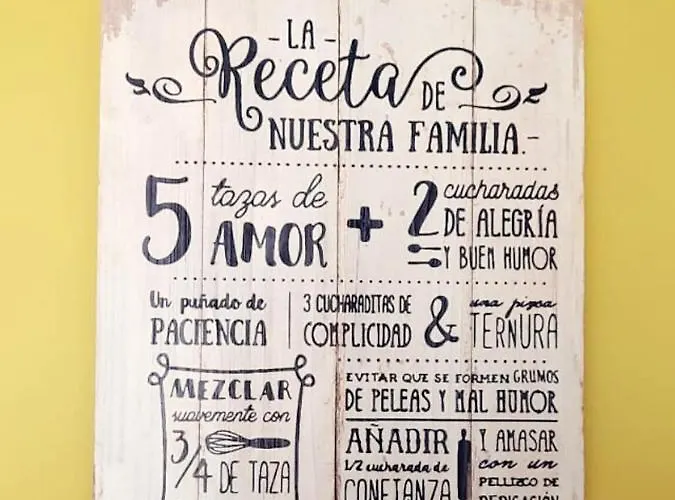 - LA -
Receta DE
NUESTRA FAMILIA.-
5 tazas de
AMOR
+
2 cucharadas
DE ALEGRÍA
Y BUEN HUMOR
Un puñado de
PACIENCIA
3 CUCHARADITAS DE
COMPLICIDAD
&
una pizca
TERNURA
MEZCLAR
suavemente con
3/4 DE TAZA
EVITAR QUE SE FORMEN GRUMOS
DE PELEAS Y MAL HUMOR
AÑADIR
1/2 cucharada de
CONFIANZA
Y AMASAR
con un
PELLIZCO DE
DEDICACIÓN